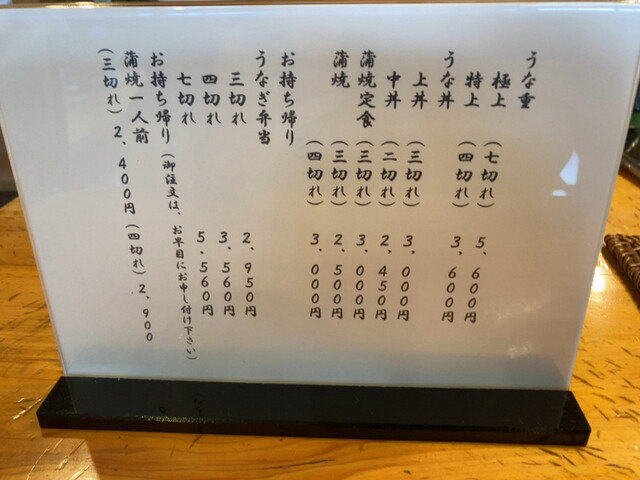 うな重
極上 (七切れ) 5,600円
特上 (四切れ) 3,600円
うな丼
上丼 (三切れ) 3,000円
中丼 (二切れ) 2,450円
蒲焼定食 (三切れ) 3,000円
蒲焼 (三切れ) 2,500円
(四切れ) 3,000円
お持ち帰り
うなぎ弁当
三切れ 2,950円
四切れ 3,560円
七切れ 5,560円
お持ち帰り (御注文は、お早目にお申し付け下さい)
蒲焼一人前
(三切れ) 2,400円 (四切れ) 2,900